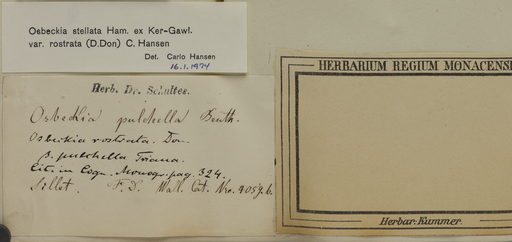 Osbeckia stellata Ham. ex Ker-Gawl.
var. rostrata (D.Don) C. Hansen
Det. Carlo Hansen
16.1.1974
Herb. Dr. Schultes.
Osbeckia pulchella Benth.
Osbeckia rostrata. Don.
β. pulchella Triana.
Cit. in Cogn. Monogr. pag. 324.
Sillet. F. D. Wall. Cat. Nro. 4057. b.
HERBARIUM REGIUM MONACENSE
Herbar. Kummer.